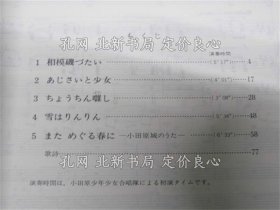 もくじ
演奏時間
1 相模磯づたい (5′17″) 4
2 あじさいと少女 17
3 ちょうちん囃し 28
4 雪はりんりん 48
5 また めぐる春に —小田原城のうた— 58
歌詩 77
演奏時間は，小田原少年少女合唱隊による初演タイムです。
孔网 北新书局 定价良心
孔网 北新书局 定价良心
孔网 北新书局 定价良心